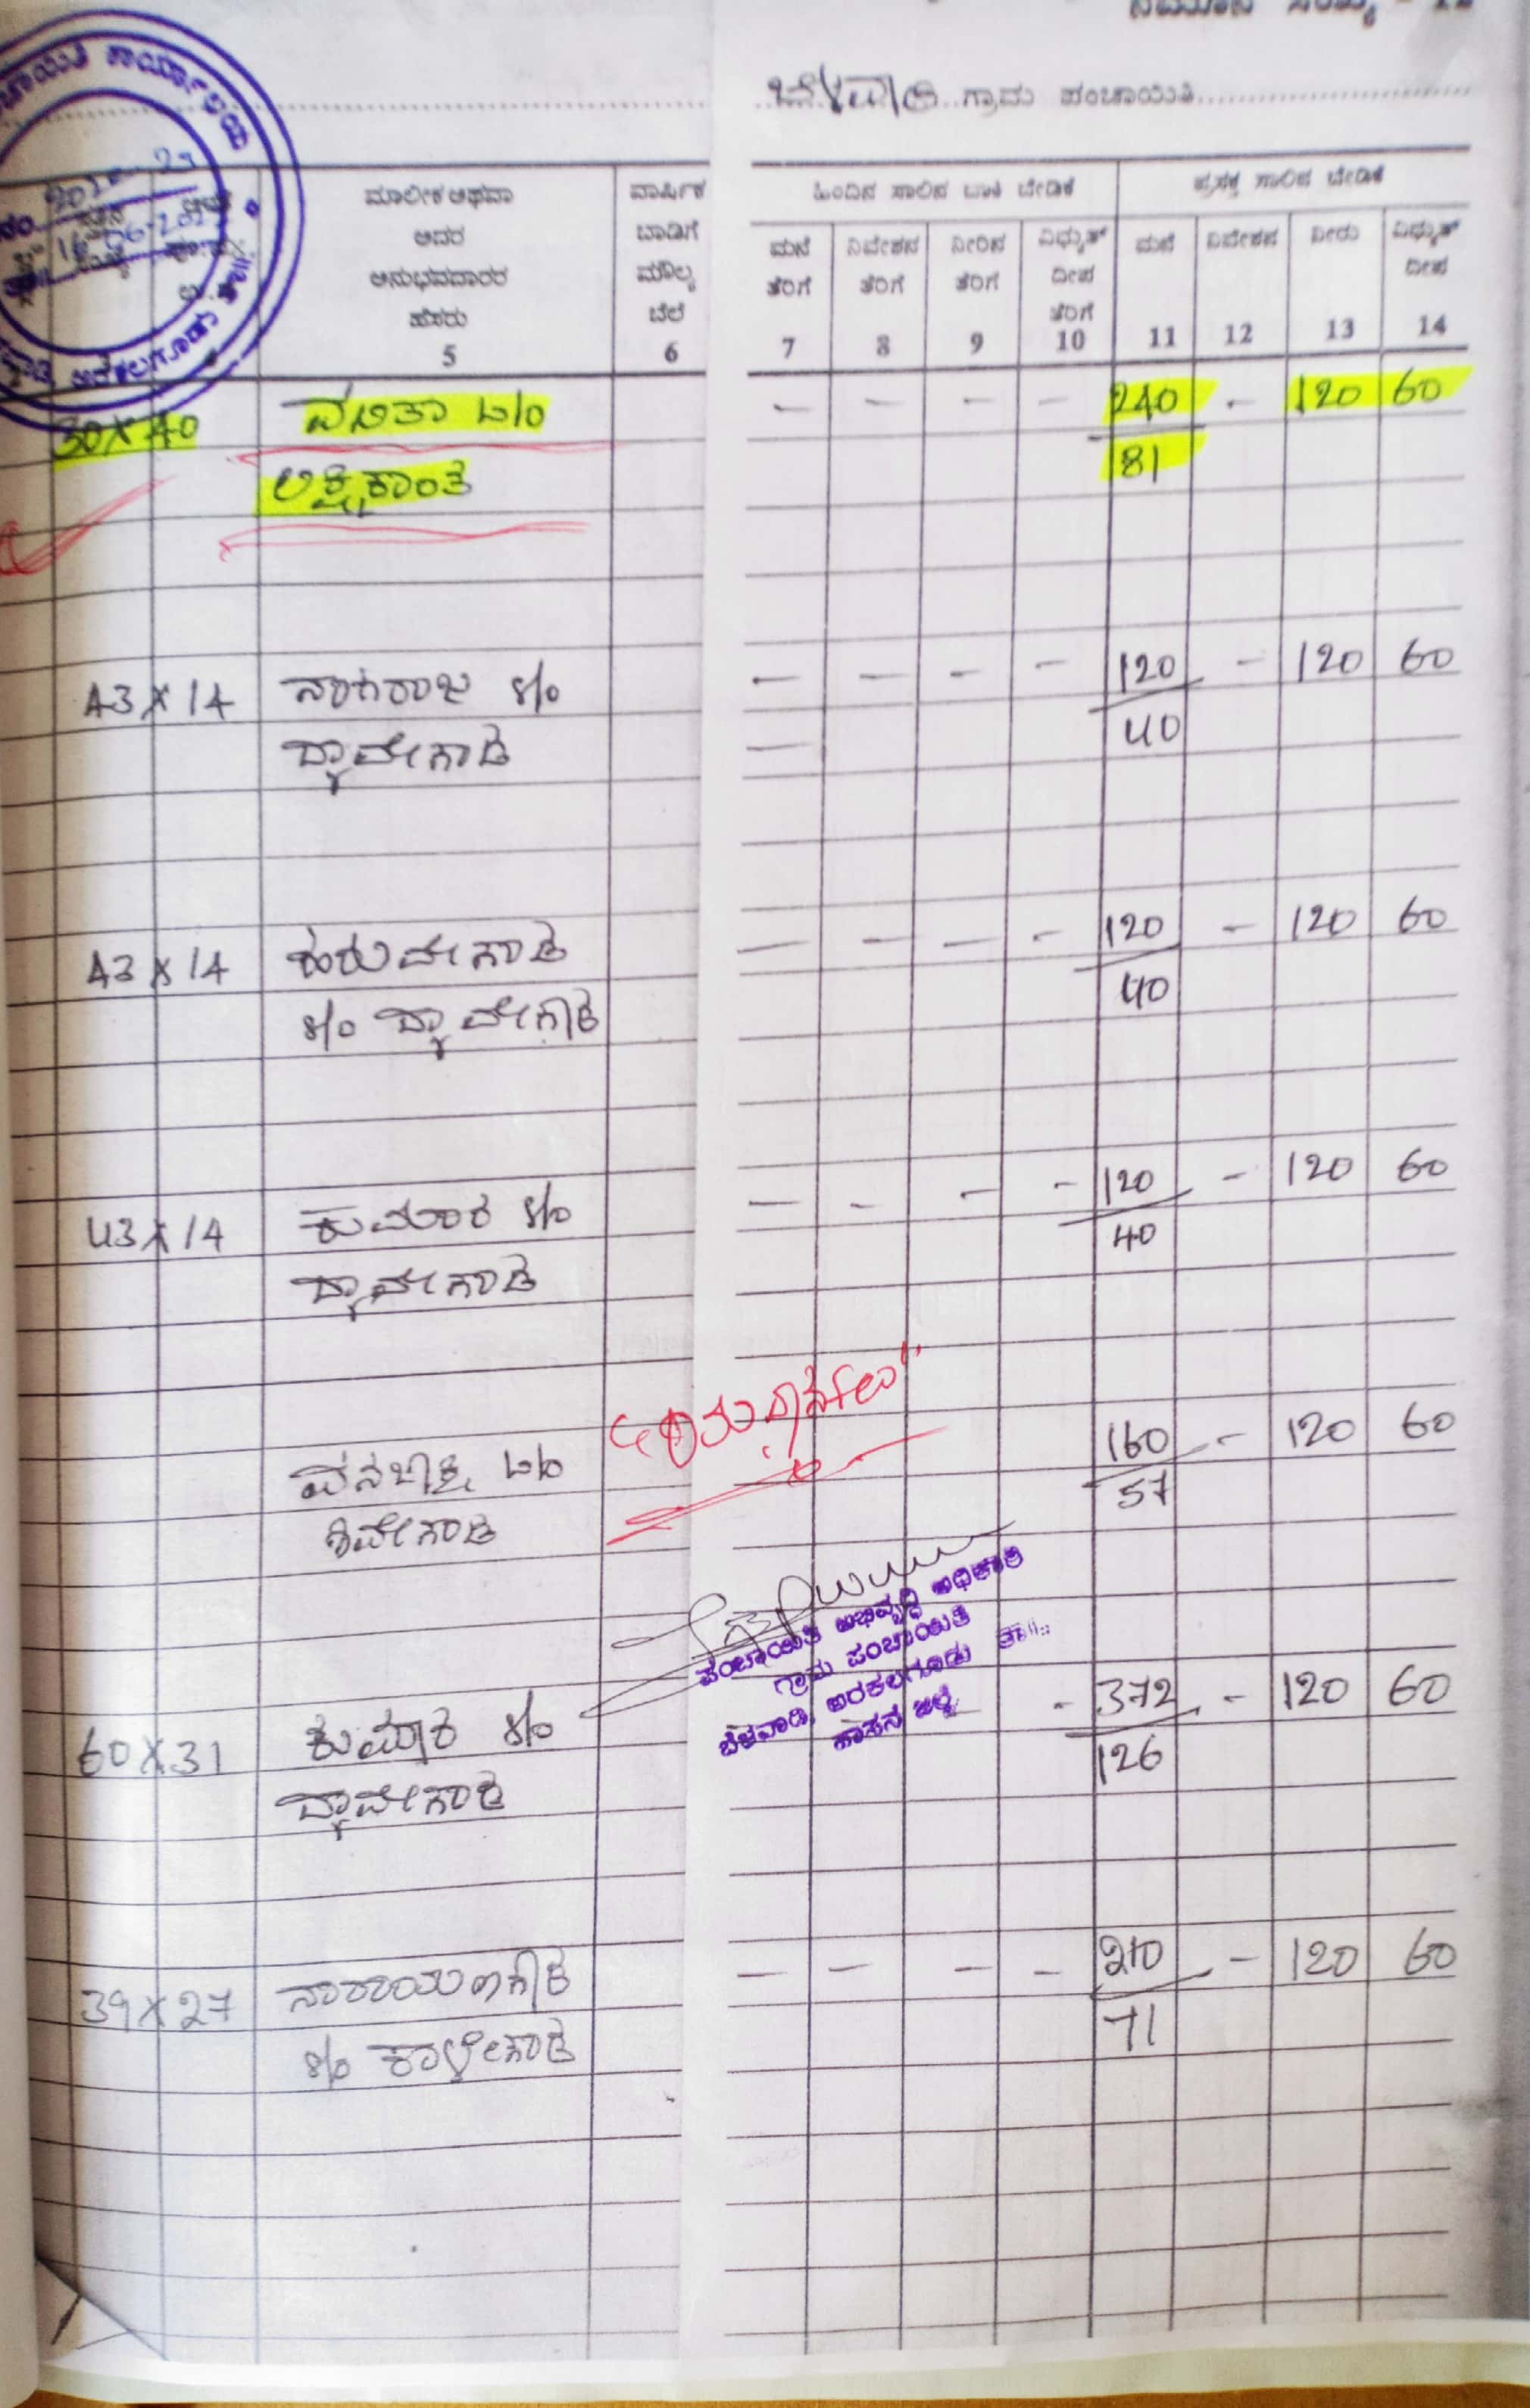 ಬೆಳವಾಡಿ ಗ್ರಾಮ ಪಂಚಾಯಿತಿ
ಮಾಲೀಕ ಅಥವಾ ಅದರ ಅನುಭವದಾರರ ಹೆಸರು
ವಾರ್ಷಿಕ ಬಾಡಿಗೆ ಮೌಲ್ಯ ಬೆಲೆ
ಹಿಂದಿನ ಸಾಲಿನ ಬಾಕಿ ಬೇಡಿಕೆ
ಪ್ರಸಕ್ತ ಸಾಲಿನ ಬೇಡಿಕೆ
ಮನೆ ತೆರಿಗೆ
ನಿವೇಶನ ತೆರಿಗೆ
ನೀರಿನ ತೆರಿಗೆ
ವಿದ್ಯುತ್ ದೀಪ ತೆರಿಗೆ
ಮನೆ
ನಿವೇಶನ
ನೀರು
ವಿದ್ಯುತ್ ದೀಪ
5 6 7 8 9 10 11 12 13 14
16-06-
30X40 ವನಿತಾ w/o - - - - 240 - 120 60
ಲಕ್ಷ್ಮಿಕಾಂತ 81
43X14 ನಾಗರಾಜ s/o - - - - 120 - 120 60
ದ್ಯಾವೇಗೌಡ - 40
43X14 - - - - 120 - 120 60
s/o ದ್ಯಾವೇಗೌಡ 40
43X14 ಕುಮಾರ s/o - - - - 120 - 120 60
ದ್ಯಾವೇಗೌಡ 40
ವನಜಾಕ್ಷಿ w/o 160 - 120 60
ಶಿವೇಗೌಡ 57
ಪಂಚಾಯಿತಿ ಅಭಿವೃದ್ಧಿ ಅಧಿಕಾರಿ
ಗ್ರಾಮ ಪಂಚಾಯಿತಿ
ಬೆಳವಾಡಿ, ಅರಕಲಗೂಡು ತಾ||
ಹಾಸನ ಜಿಲ್ಲೆ
60X31 ಕುಮಾರ s/o - 372 - 120 60
ದ್ಯಾವೇಗೌಡ 126
39X27 ನಾರಾಯಣಗೌಡ - - - - 210 - 120 60
s/o ಕಾಳೇಗೌಡ 71